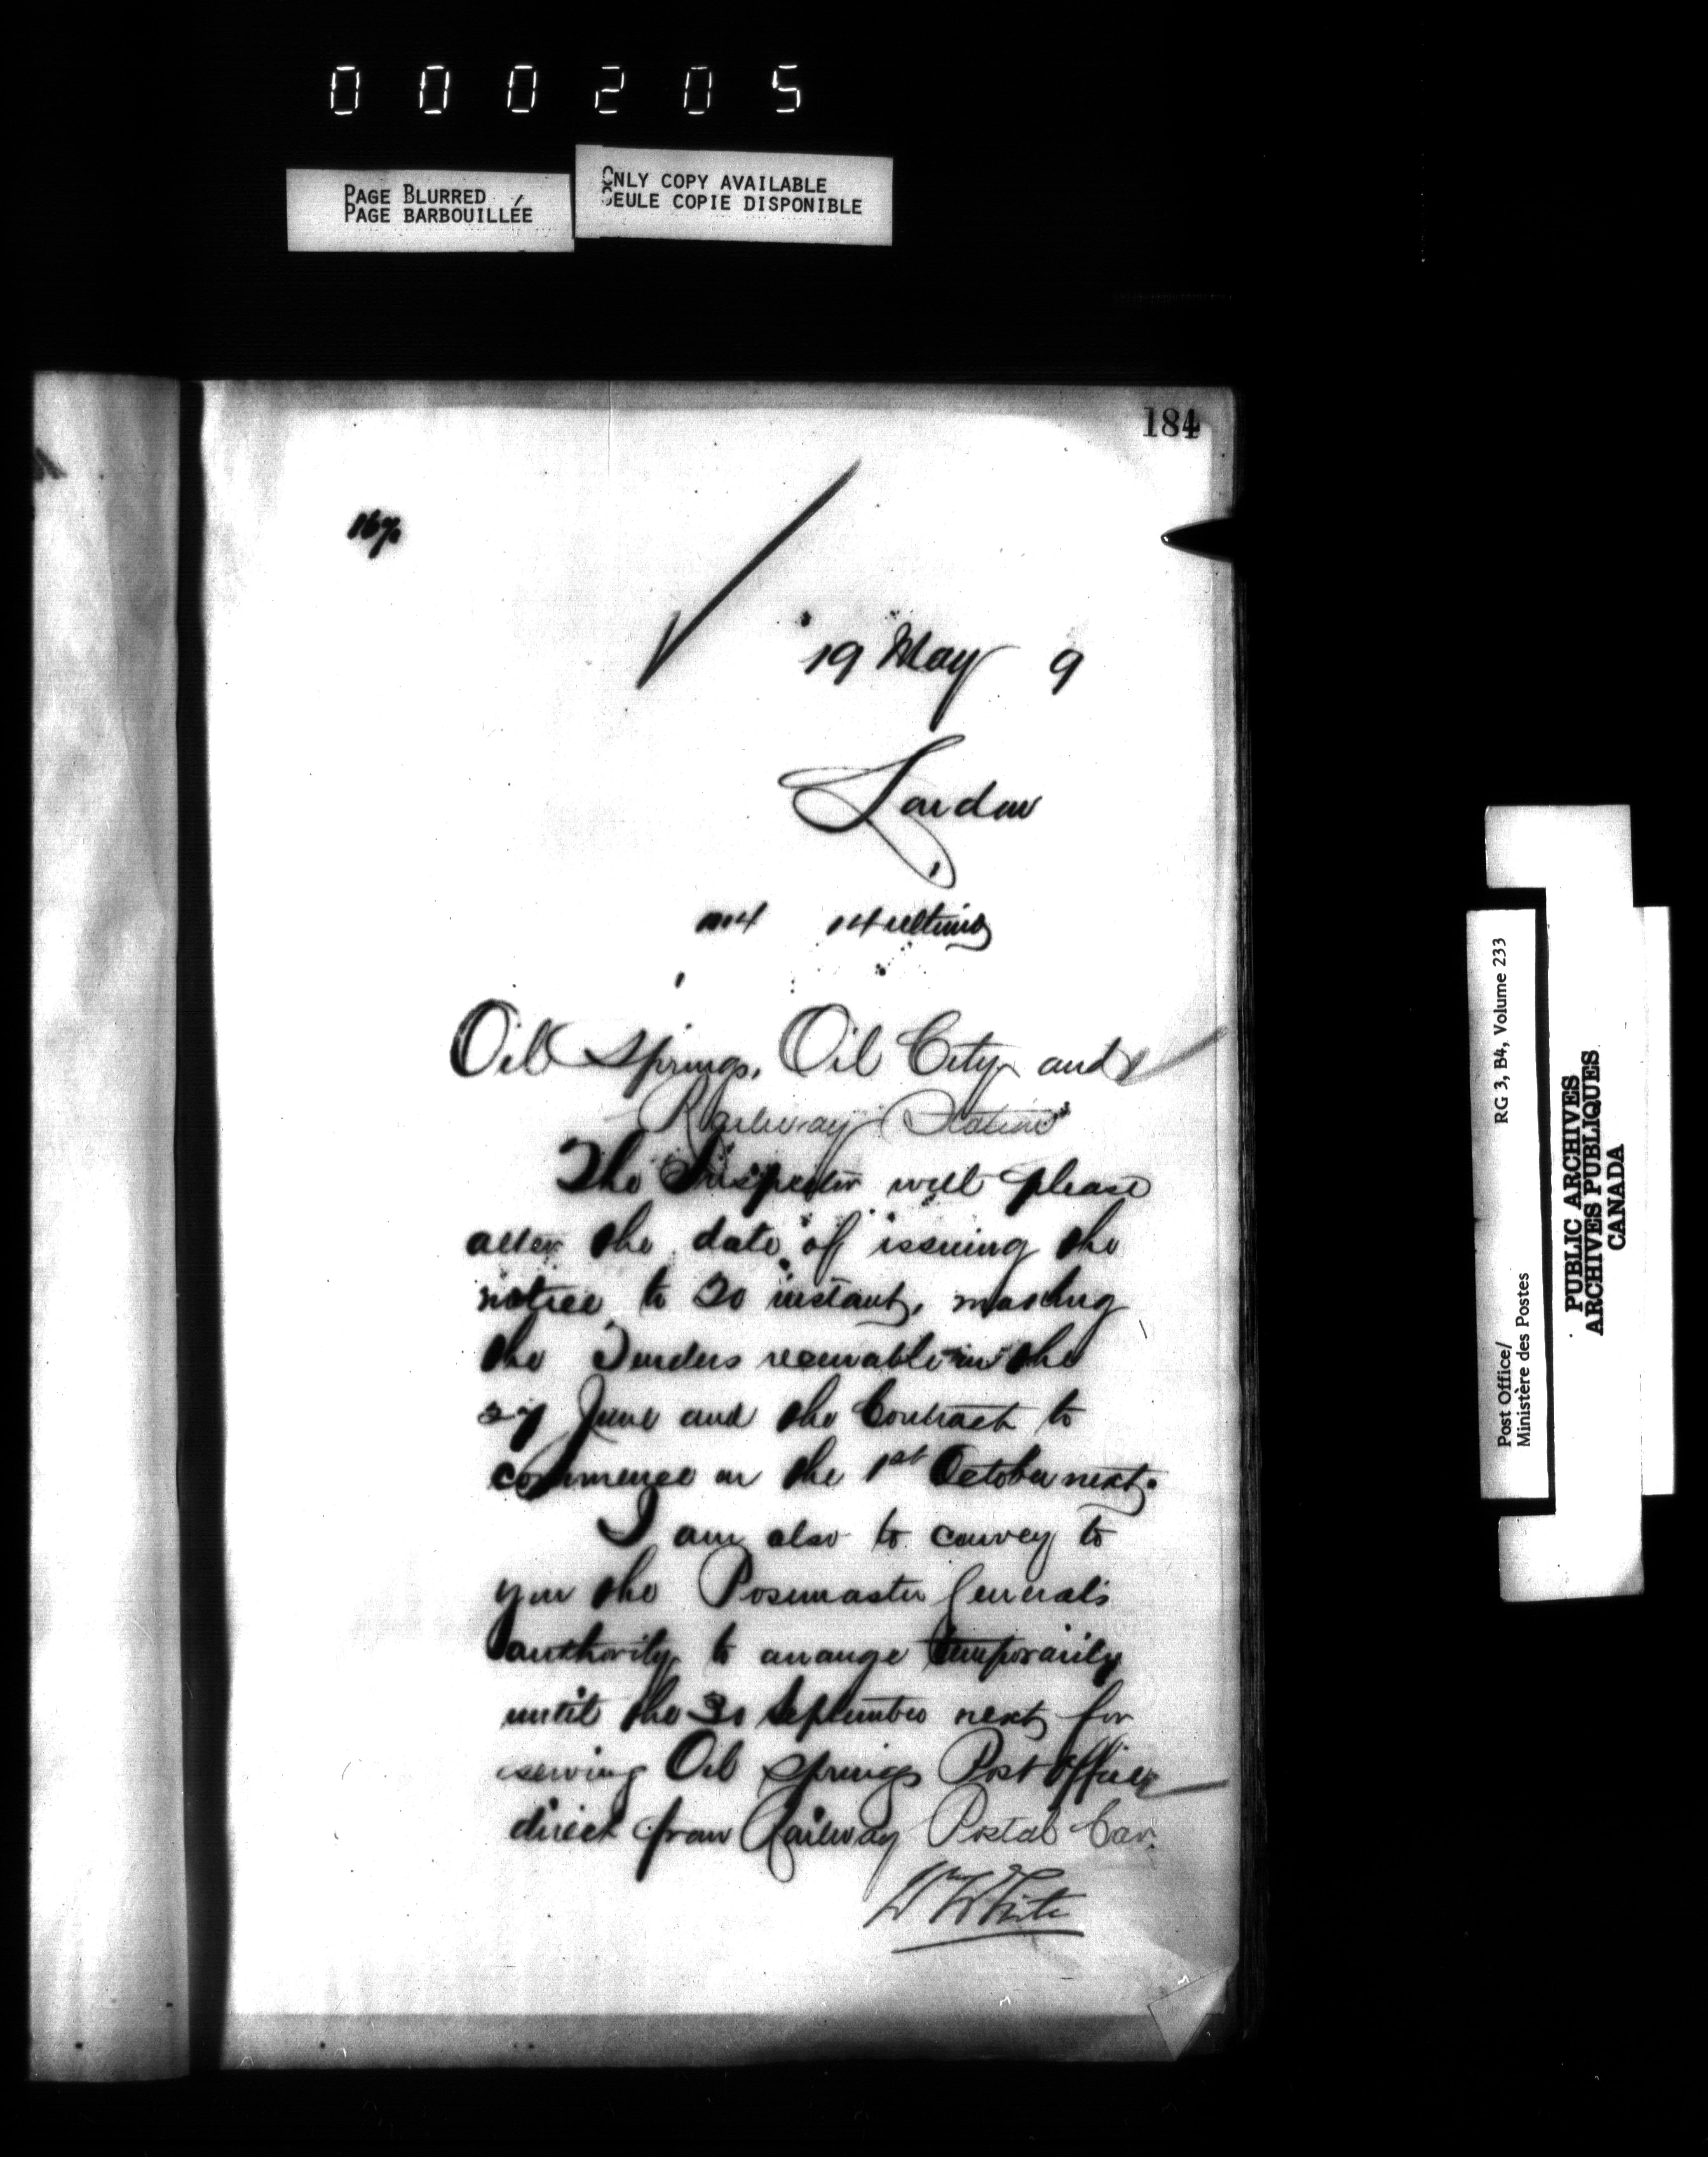 000205
PAGE BLURRED
PAGE BARBOUILLÉE
ONLY COPY AVAILABLE
SEULE COPIE DISPONIBLE
184
167
19 May 9
London
14 ultimo
Oil Springs, Oil City and
Railway Station
The Inspector will please
alter the date of issuing the
notice to 20 instant, making
the Tenders receivable on the
27 June and the Contract to
commence on the 1st October next.
I am also to convey to
you the Posmaster General's
authority to arrange temporarily
until the 30 September next for
serving Oil Springs Post Office
direct from Railway Postal Car.
W White
Post Office/
Ministère des Postes
RG 3, B4, Volume 233
PUBLIC ARCHIVES
ARCHIVES PUBLIQUES
CANADA